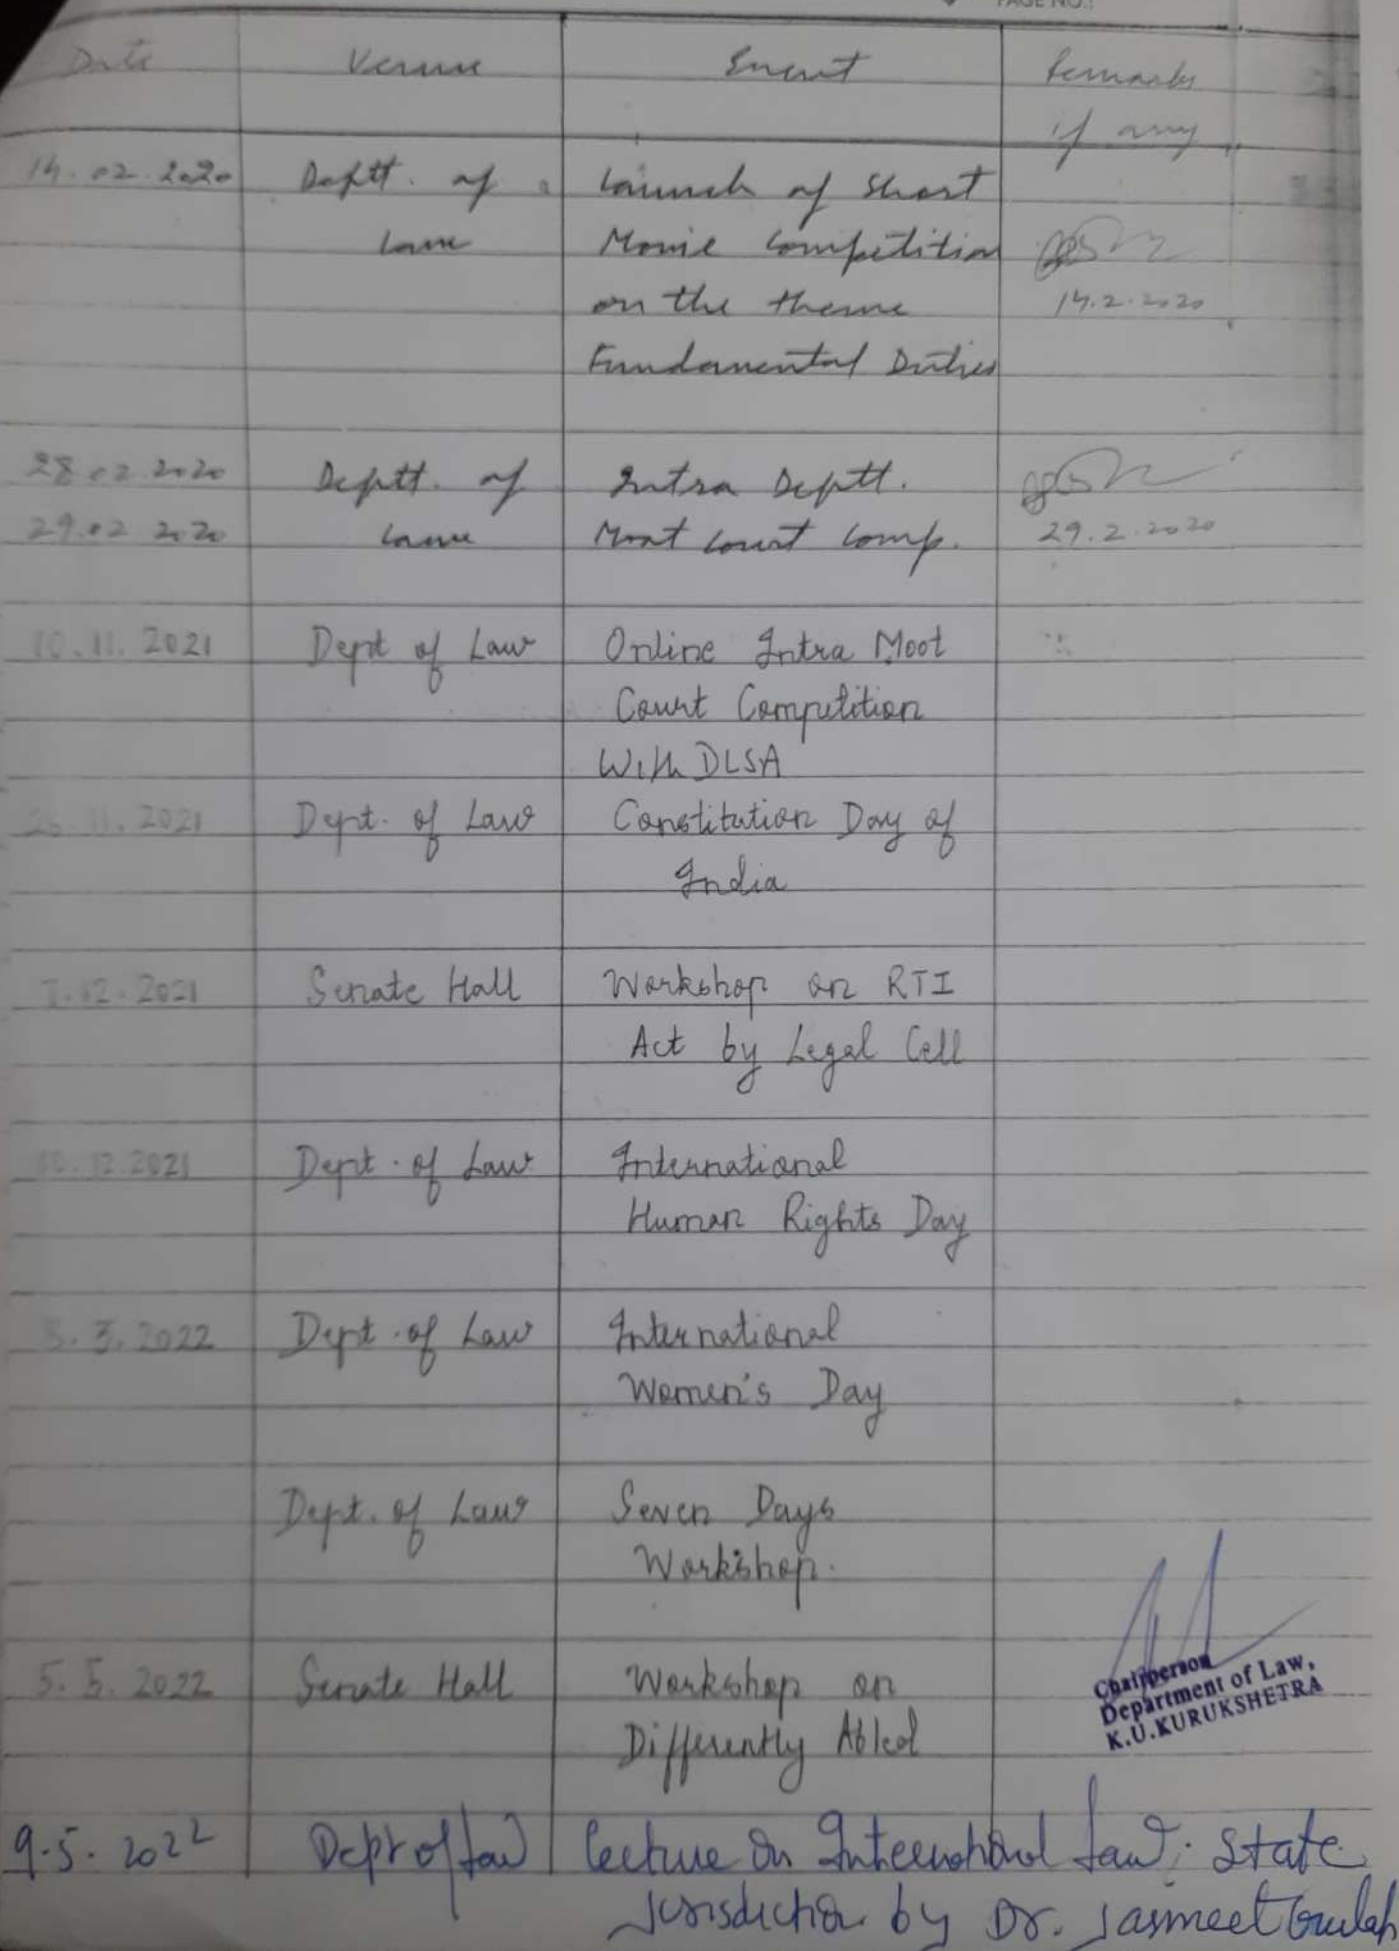 PAGE NO.:
Date Venue Event Remarks
if any
14.02.2020 Deptt. of Launch of Short
Law Movie Competition
on the theme 14.2.2020
Fundamental Duties
28.02.2020 Deptt. of Intra Deptt.
29.02 2020 Law Moot Court Comp. 29.2.2020
10.11.2021 Dept of Law Online Intra Moot
Court Competition
With DLSA
26.11.2021 Dept. of Law Constitution Day of
India
7.12.2021 Senate Hall Workshop on RTI
Act by Legal Cell
10.12.2021 Dept. of Law International
Human Rights Day
3.2022 Dept. of Law International
Women's Day
Dept. of Law Seven Days
Workshop.
5.5.2022 Senate Hall Workshop on
Differently Abled
Chairperson
Department of Law,
K.U.KURUKSHETRA
9.5.2022 Dept of Law Lecture on International Law: State
Jurisdiction by Dr. Jasmeet Gulati